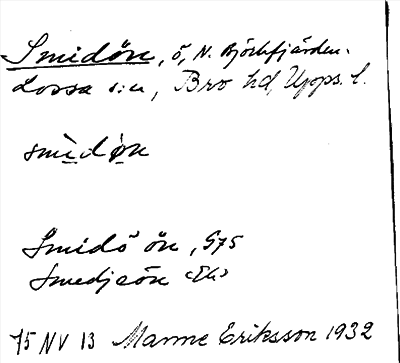 Smidön, ö, N. Björkfjärden.
Lossa s:n, Bro hd, Upps. l.
smìdø̣n
Smidö ön, G75
Smedjeön (Ek)
75 NV 13 Manne Eriksson 1932